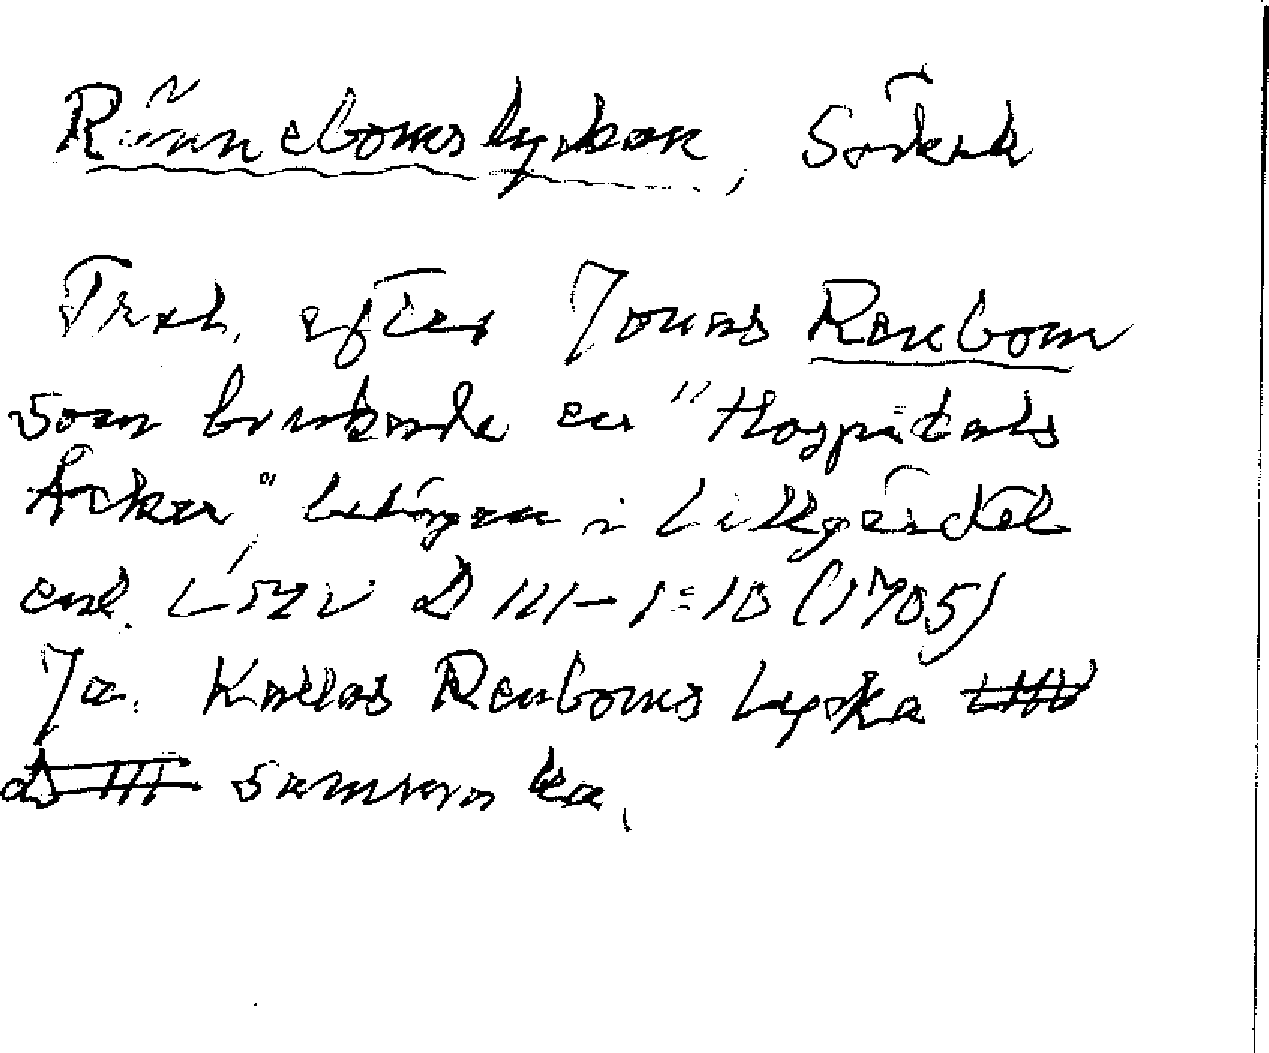 Rönnebomslyckan, Särkl
Trol. efter Jonas Renbom
som brukade en "Hospitals
Åcker", belägen i Lillgärdet
enl. LSTV D III-1:10 (1705)
Ja. Kallas Renboms Lycka
samma ka.